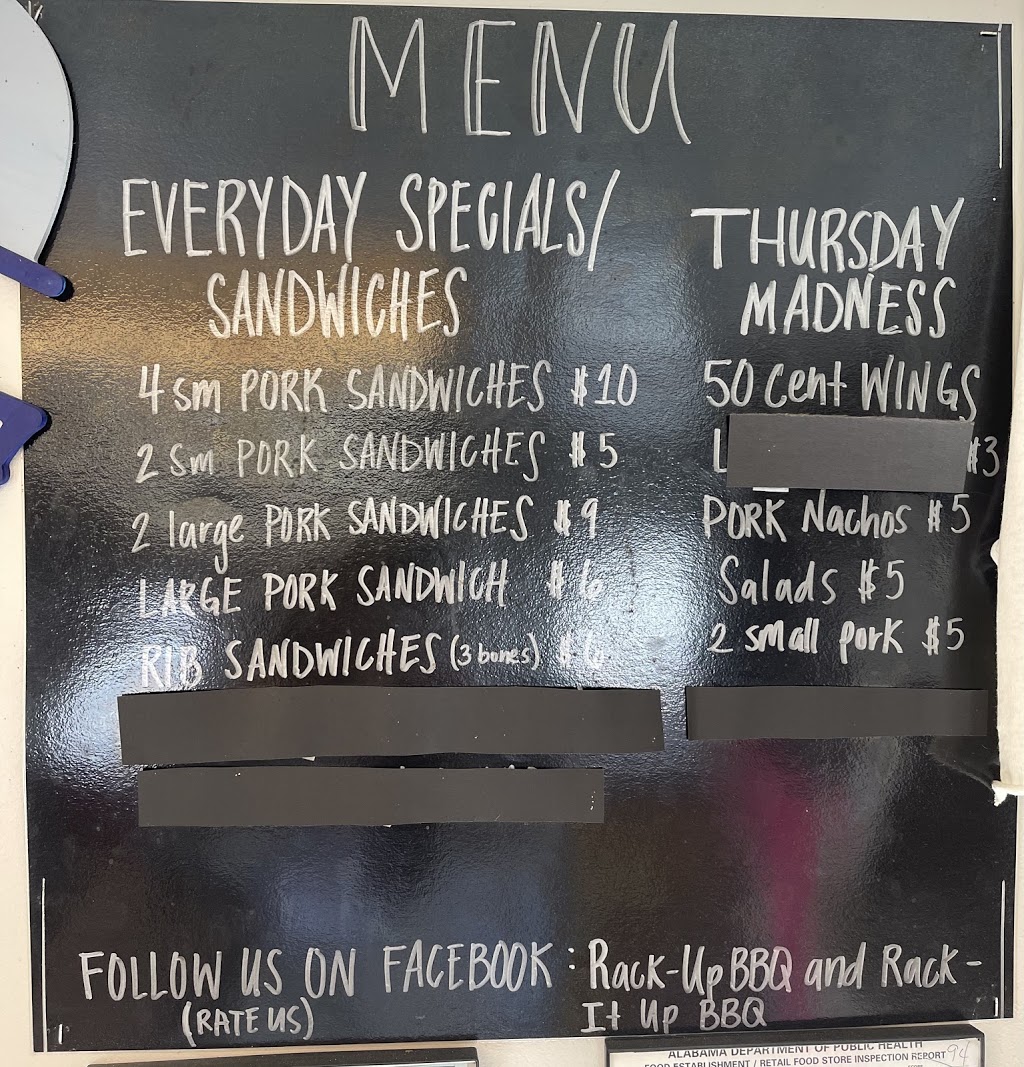 MENU
EVERYDAY SPECIALS/
SANDWICHES
4 sm PORK SANDWICHES $10
2 Sm PORK SANDWICHES $5
2 large PORK SANDWICHES $9
LARGE PORK SANDWICH $6
RIB SANDWICHES (3 bones) $6
THURSDAY
MADNESS
50 cent WINGS
L $3
PORK Nachos $5
Salads $5
2 small pork $5
FOLLOW US ON FACEBOOK: Rack-Up BBQ and Rack-
(RATE US) It Up BBQ
ALABAMA DEPARTMENT OF PUBLIC HEALTH
FOOD ESTABLISHMENT / RETAIL FOOD STORE INSPECTION REPORT 94